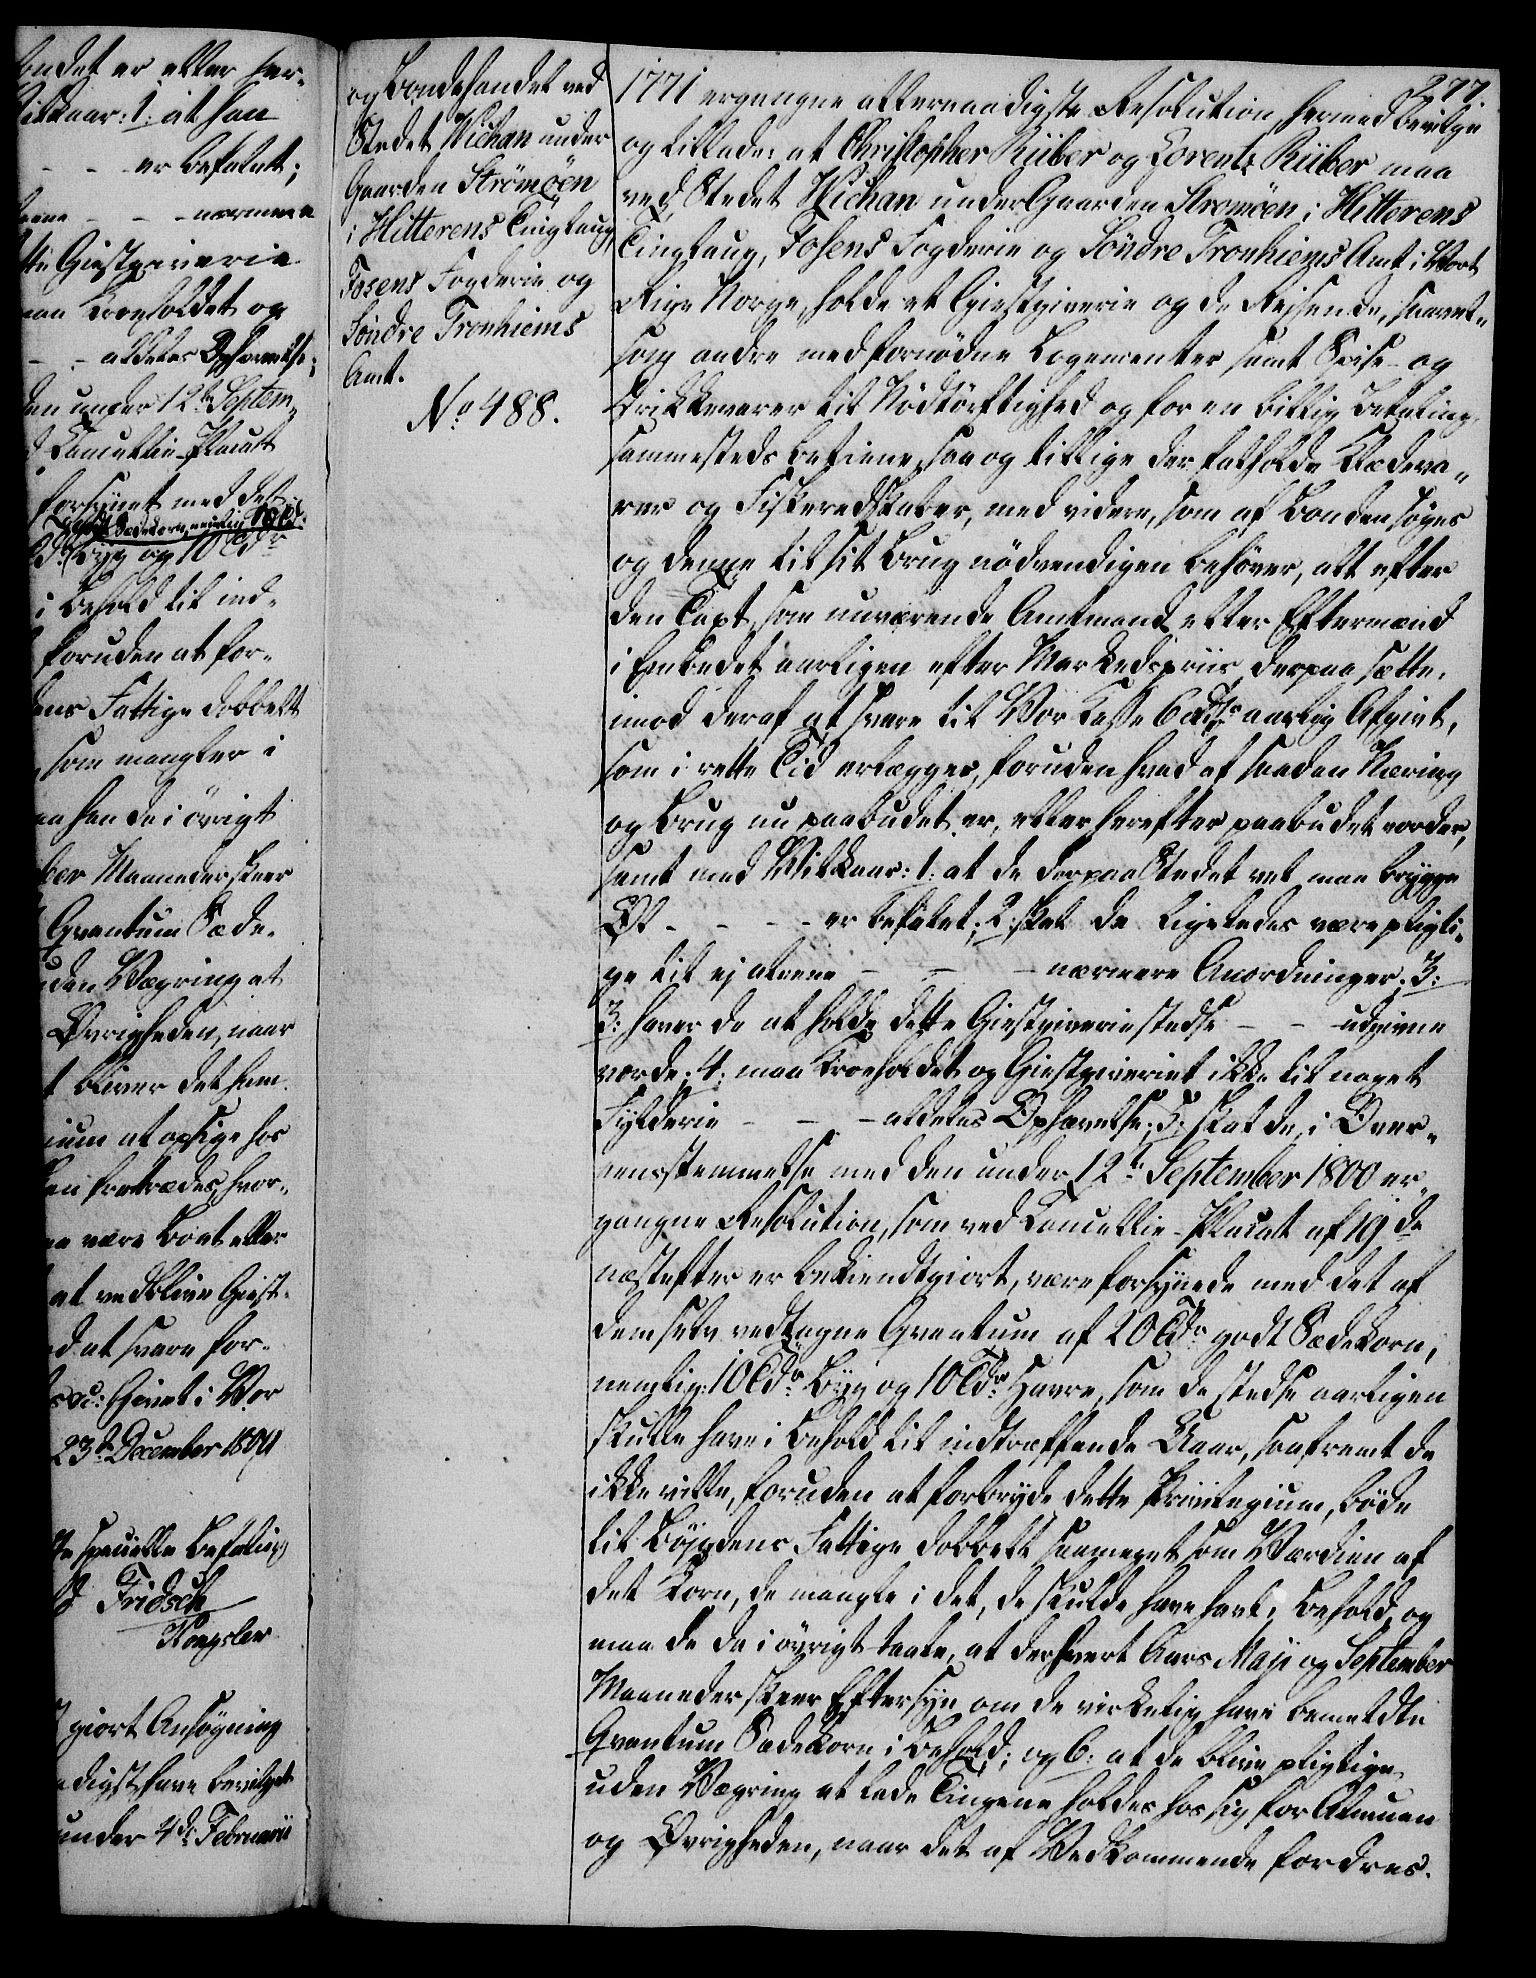 ondet er eller her-
Vilkaar: 1: at han
- - er befalet;
- - - nærmere
Giestgiverie
Kroeholdet og
- - aldeles Ophævelse;
den under 12te Septem-
Cancellie-Placat
forsynet med det
godt Sædekorn, nemlig 10
Byg og 10 Tdr
i Behold til ind-
foruden at for-
dens Fattige dobbelt
som mangler i
han da i övrigt
ber Maaneder skeer
Qvantum Sæde-
uden Vægring at
Øvrigheden, naar
bliver det ham
ium at opsige hos
fratrædes, hvor-
være Boel eller
at vedblive Giest-
at svare for-
Givet i Vor
23de December 1804
specielle Befaling
Fridsch
Kongslew
giort Ansögning
digst have bevilget
under 4de Februarii
og Bondehandel ved
Stedet Kichan under
Gaarden Strömöen
i Hitterens Tinglaug,
Fosens Fogderie og
Söndre Tronhiems
Amt.
No 488.
277.
1771 ergangne allernaadigste Resolution, hermed bevilge
og tillade: at Christopher Riiber og Lorentz Riiber maa
ved Stedet Kichan under Gaarden Strömöen i Hitterens
Tinglaug, Fosens Fogderie og Söndre Tronhiems Amt i Vort
Rige Norge, holde et Giestgiverie og de Reisende, saavel-
som andre med fornödne Logementer samt Spise- og
Drikkevarer til Nödtörftighed og for en billig Betaling,
sammesteds betiene, saa og tillige der falholde Klædeva-
rer og Fiskeredskaber, med videre, som af Bonden söges
og denne til sit Brug nödvendigen behöver, alt efter
den Taxt, som nuværende Amtmand eller Eftermænd
i Embedet aarligen efter Markedspriis derpaa sætte,
imod deraf at svare til Vor Casse 6 Rdlr aarlig Afgivt,
som i rette Tid erlægges, foruden hvad af saadan Næring
og Brug nu paabudet er, eller herefter paabudet vorder,
samt med Vilkaar: 1: at de der paa Stedet vel maa brygge
Øl - - - - er befalet; 2: skal de ligeledes være pligti-
ge til ej alene - - - nærmere Anordninger; 3:
3: haver de at holde dette Giestgiverie stedse - - udgivne
vorde; 4: maa Kroeholdet og Giestgiveriet ikke til noget
Fylderie - - - aldeles Ophævelse; 5: skal de, i Over-
eensstemmelse med den under 12te September 1800 er-
gangne Resolution, som ved Cancellie-Placat af 19de
næstefter er bekiendtgiort, være forsynede med det af
dem selv vedtagne Qvantum af 20 Tdr godt Sædekorn,
nemlig: 10 Tdr Byg og 10 Tdr Havre, som de stedse aarligen
skulle have i Behold til indtræffende Uaar, saafremt de
ikke ville, foruden at forbryde dette Privilegium, böde
til Böygdens Fattige dobbelt saameget som Værdien af
det Korn, de mangle i det, de skulde have havt i Behold, og
maa de da i övrigt taale, at der hvert Aars Maji og September
Maaneder skeer Eftersyn om de virkelig have bemeldte
Qvantum Sædekorn i Behold; og 6: at de blive pligtige
uden Vægring at lade Tingene holdes hos sig for Almuen
og Øvrigheden, naar det af Vedkommende fordres.